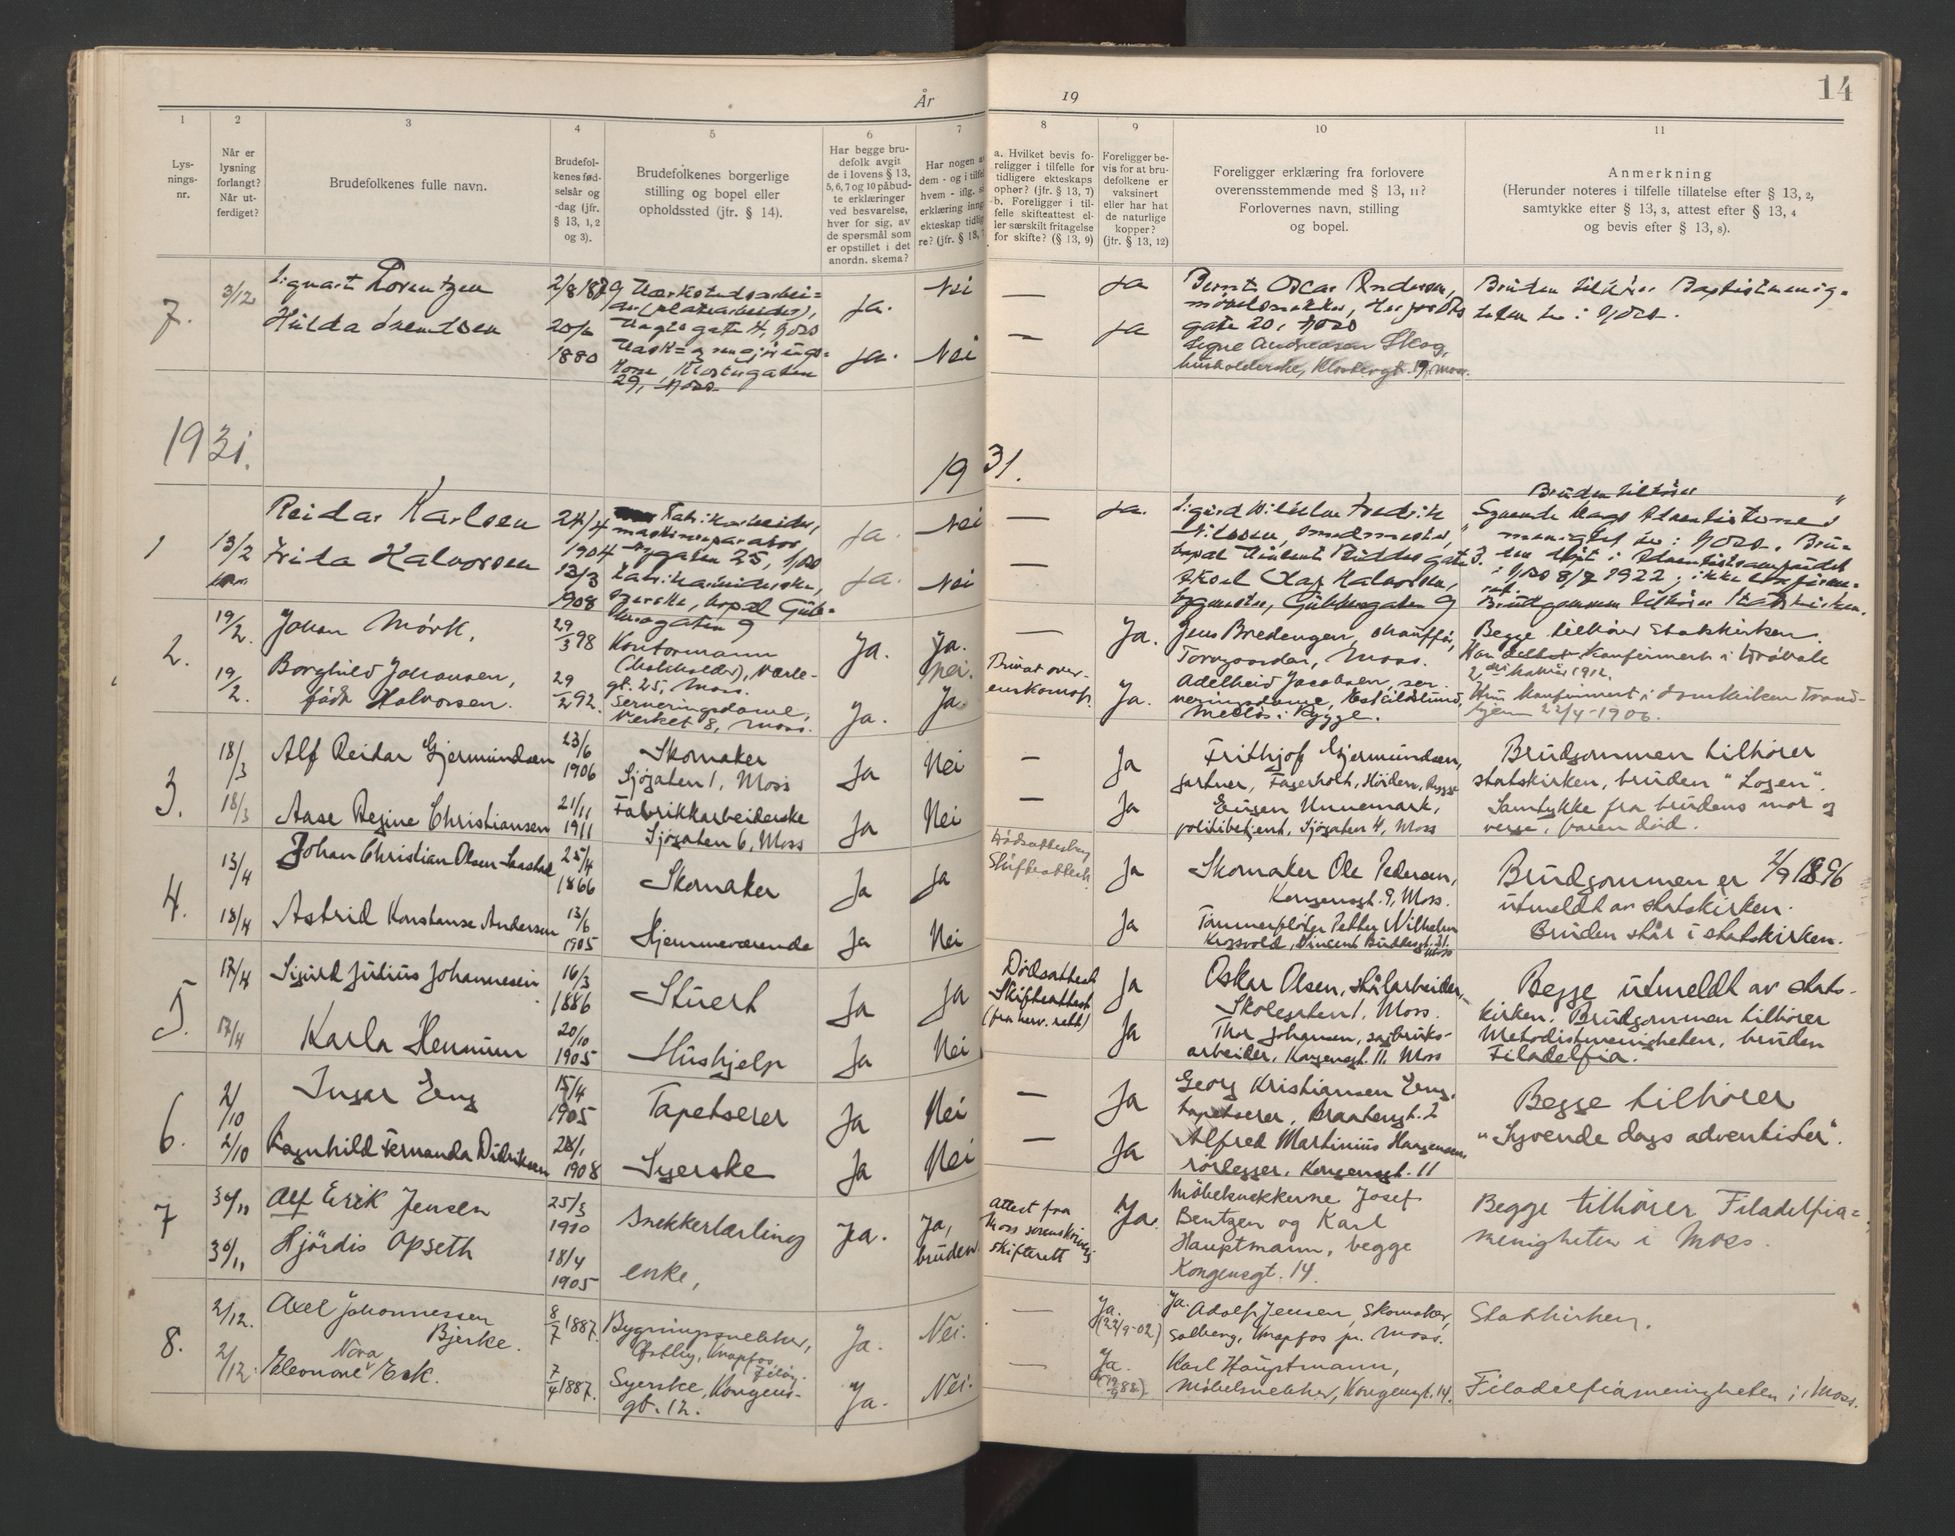 År 19
14
1 2 3 4 5 6 7 8 9 10 11
Lys-
nings-
nr.
Når er
lysning
forlangt?
Når ut-
ferdiget?
Brudefolkenes fulle navn.
Brudefol-
kenes fød-
selsår og
-dag (jfr.
§ 13, 1, 2
og 3).
Brudefolkenes borgerlige
stilling og bopel eller
opholdssted (jfr. § 14).
Har begge bru-
defolk avgit
de i lovens § 13,
5, 6, 7 og 10 påbud-
te erklæringer
ved besvarelse,
hver for sig, av
de spørsmål som
er opstillet i det
anordn. skema?
Har nogen a
dem - og i tilfel
hvem - iflg. s
erklæring inng
ekteskap tidlig
re? (jfr. § 13,
a. Hvilket bevis fo-
religger i tilfelle for
tidligere ekteskaps
ophør? (jfr. § 13, 7)
b. Foreligger i til-
felle skifteattest el-
ler særskilt fritagelse
for skifte? (§ 13, 9)
Foreligger be-
vis for at bru-
defolkene er
vaksinert
eller har hat
de naturlige
kopper?
(jfr. § 13, 12)
Foreligger erklæring fra forlovere
overensstemmende med § 13, 11?
Forlovernes navn, stilling
og bopel.
Anmerkning
(Herunder noteres i tilfelle tillatelse efter § 13, 2,
samtykke efter § 13, 3, attest efter § 13, 4
og bevis efter § 13, 8).
7.
3/12
Sigvart Lorentzen
Hilda
2/8 1879
20/
1880
gate 4,
29,
Ja.
Ja.
Nei
Nei
—
—
Ja
Ja
Bernt Oscar Andersen,
gate 20,
Signe Andreasen Skog,
husholderske, Klostergt. 19, Moss.
Bruden tilhører Baptistmenig-
heten her i
1931.
1931.
1
13/2
Reidar Karlsen
Frida Halvorsen
24/4
1904
13/3
1908
Fabrikarbeider,
25,
syerske, bopæl Gub-
9
Ja.
Ja.
Nei
Nei
—
—
Ja.
Sigurd Wilhelm Fredrik
Nilssen, smedmester,
bopæl Vincent Buddes gate 3.
Olaf Halvorsen,
9
Bruden tilhører
Syvende Dags Adventistenes
menighet her i
8/7 1922; ikke
Brudgommen tilhører statskirken.
2.
19/2.
19/2.
Johan Mørk,
Borghild Johansen,
født Halvorsen.
29/3 98
29/2 92.
Kontormann
gt. 25, Moss.
Serveringsdame,
Verket 8, Moss.
Ja.
Ja.
Ja.
Nei.
Ja.
—
Privat over-
enskomst.
Ja.
Ja.
Jens Bredengen, chauffør,
Torvgaarden, Moss.
Adelheid Jacobsen, ser-
veringsdame,
i Rygge.
Begge tilhører statskirken.
Han konfirmert i
1912.
Hun konfirmert i Domkirken Trond-
hjem 22/4-1906.
3.
18/3
18/3
Alf Reidar Gjermundsen
Aase Regine Christiansen
23/6
1906
21/11
1911
Skomaker
Sjøgaten 1, Moss
Fabrikkarbeiderske
Sjøgaten 6, Moss
Ja
Ja
Nei
Nei
—
—
Ja
Ja
Frithjof Gjermundsen,
gartner, Fagerholt, Höiden, Rygge
Eugen Unnemark,
politibetjent, Sjøgaten 4, Moss
Brudgommen tilhører
statskirken, bruden "Logen".
Samtykke fra brudens mor og
verge, faren død.
4.
13/4
18/4
Johan Christian Olsen
Astrid Konstanse Andersen
25/4
1866
13/6
1905
Skomaker
Hjemmeværende
Ja
Ja
Ja
Nei
Dødsattest og
Skifteattest
Ja
Ja
Skomaker Ole Pedersen,
Kongensgt. 9, Moss.
Tømmerfløter Petter Wilhelm
Krosvold, Vincent Buddesgt. 21.
Moss
Brudgommen er 2/9 1896
utmeldt av statskirken.
Bruden står i statskirken.
5.
17/4
17/4
Sigurd Julius Johannesen
Karla Hennum
16/3
1886
20/10
1905
Stuert
Hushjelp
Ja
Ja
Ja
Nei
Dødsattest
Skifteattest
(fra herv. rett)
Ja
Ja
Oskar Olsen, stålarbeider,
Skolegaten 1, Moss.
Thor Johansen, sagbruks-
arbeider, Kongensgt. 11 Moss
Begge utmeldt av stats-
kirken. Brudgommen tilhører
Metodistmenigheten, bruden
Filadelfia.
6.
2/10
2/10
Ingar Eng
Ragnhild Fernanda Didriksen
15/4
1905
28/1
1908
Tapetserer
Syerske
Ja
Ja
Nei
Nei
—
—
Ja
Ja
Georg Kristiansen Eng,
tapetserer, Braatengt. 2
Alfred Martinius Haagensen,
rørlegger, Kongensgt. 11
Begge tilhører
"Syvende dags adventister".
7
30/11
30/11
Alf Erik Jensen
Hjördis Opseth
25/3
1910
18/4
1905
snekkerlærling
enke,
Ja.
Ja,
bruden
Attest fra
Moss sorenskriveri
skifterett
Ja.
Møbelsnekkerne Josef
Bentzen og Karl
Hauptmann, begge
Kongensgt. 14.
Begge tilhører Filadelfia-
menigheten i Moss.
8.
2/12.
2/12.
Axel Johannessen
Bjerke.
Nora
Eleonore Esk.
8/7 1887.
7/4 1887.
Bygningssnekker,
Østby, Knapfos
Syerske, Kongens-
gt. 12.
Ja.
Ja.
Nei.
Nei.
—
—
Ja.
(22/9-02)
Ja.
Ja. Adolf Jensen, Skomaker,
Solberg, Knapfos pr. Moss.
Karl Hauptmann,
Møbelsnekker, Kongensgt. 14.
Statskirken.
Filadelfiamenigheten i Moss.